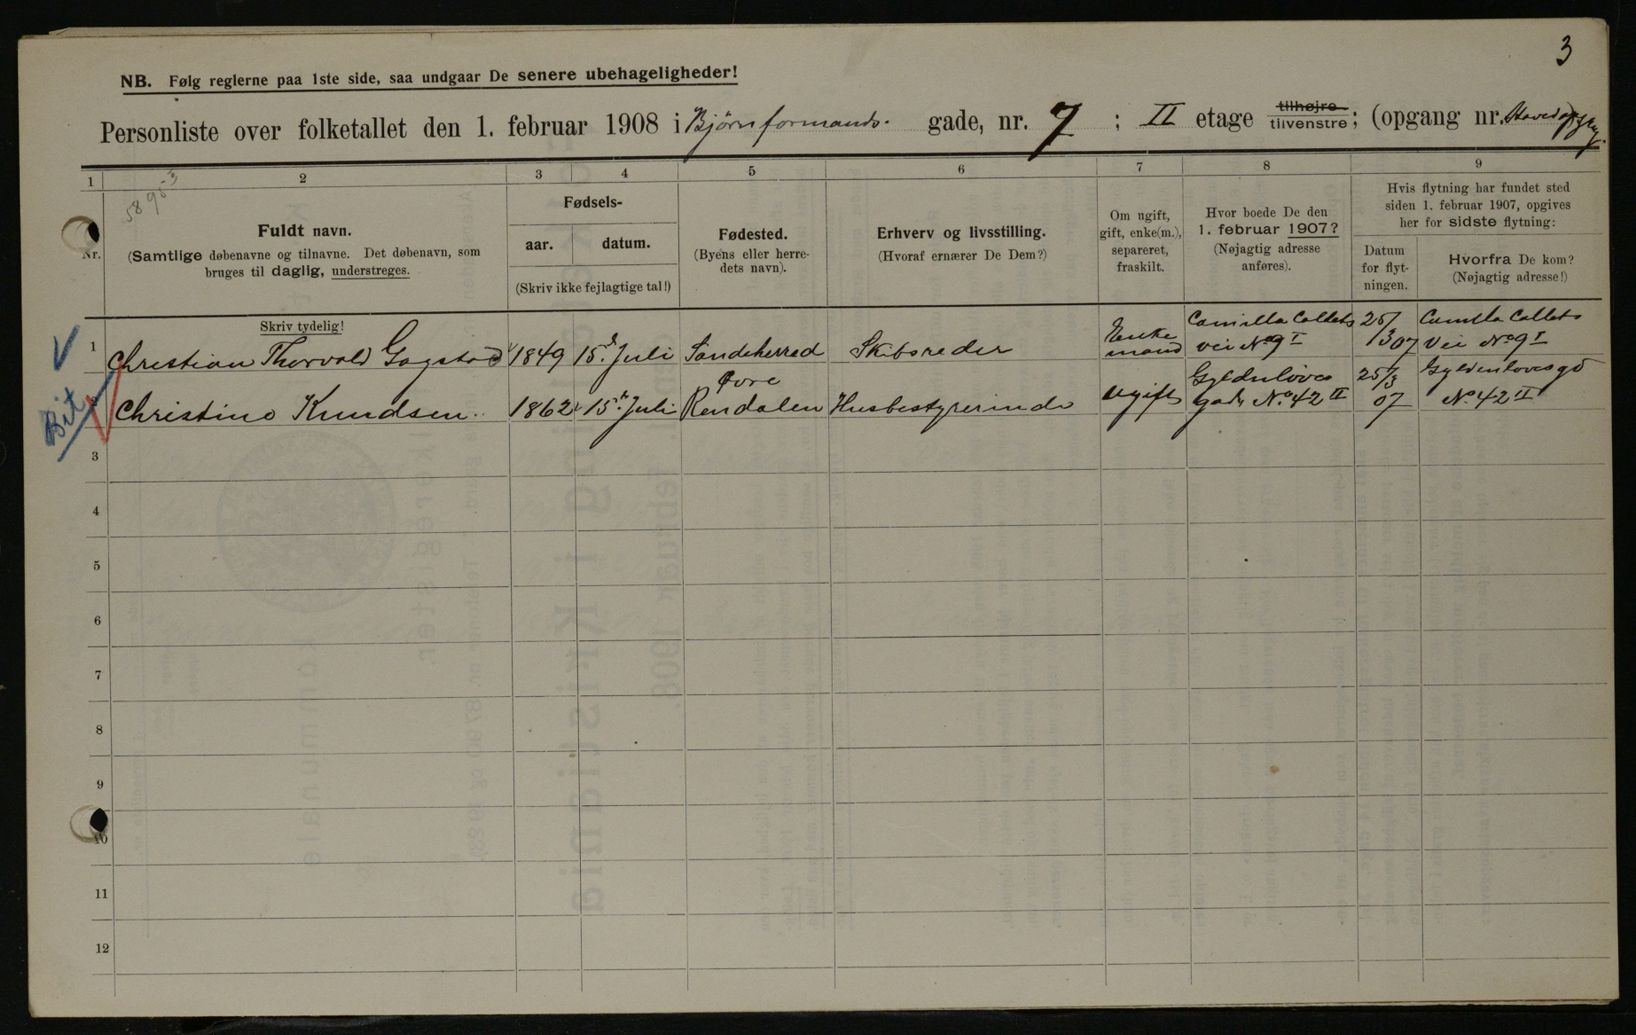 3
NB. Følg reglerne paa 1ste side, saa undgaar De senere ubehageligheder!
Personliste over folketallet den 1. februar 1908 i Bjørnformands. gade, nr. 7 ; II etage tilhøjre tilvenstre; (opgang nr.
58 90-3
1 2 3 4 5 6 7 8 9
Nr.
Fuldt navn.
(Samtlige døbenavne og tilnavne. Det døbenavn, som
bruges til daglig, understreges.
Skriv tydelig!
Fødsels-
aar. datum.
(Skriv ikke fejlagtige tal!)
Fødested.
(Byens eller herre-
dets navn).
Erhverv og livsstilling.
(Hvoraf ernærer De Dem?)
Om ugift,
gift, enke(m.),
separeret,
fraskilt.
Hvor boede De den
1. februar 1907?
(Nøjagtig adresse
anføres).
Hvis flytning har fundet sted
siden 1. februar 1907, opgives
her for sidste flytning:
Datum
for flyt-
ningen.
Hvorfra De kom?
(Nøjagtig adresse!)
1 Christian Thorvald Gogstad 1849 15d Juli Sandeherred Skibsreder Enke mand Camilla Collets vei No 9 I 25/3 07 Camilla Collets Vei No 9 I
Bit
2 Christine Knudsen 1862 15d Juli Øvre Rendalen Husbestyrerinde Ugift Gyldenløves Gade No. 42 II 25/3 07 Gyldenløvesgd No. 42 II
3
4
5
6
7
8
9
10
11
12